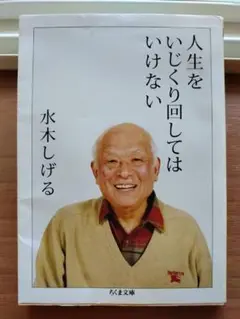 人生を
いじくり回しては
いけない
水木しげる
ちくま文庫